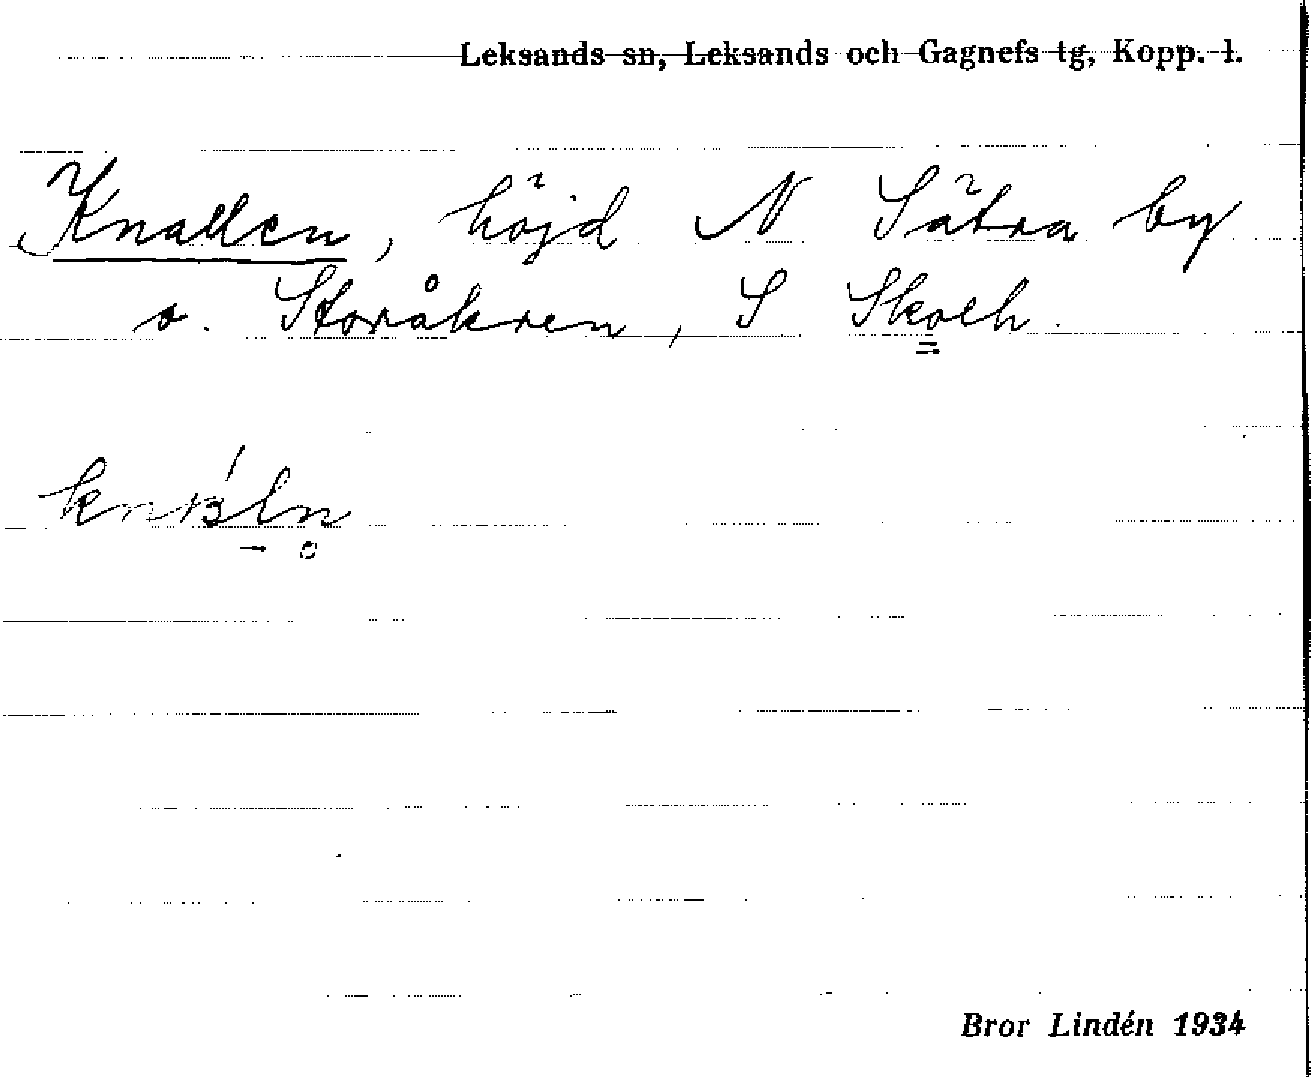 Leksands sn, Leksands och Gagnefs tg, Kopp. l.
Knallen, höjd N Sätra by
o. Storåkren, S Skoeh.
Bror Lindén 1934